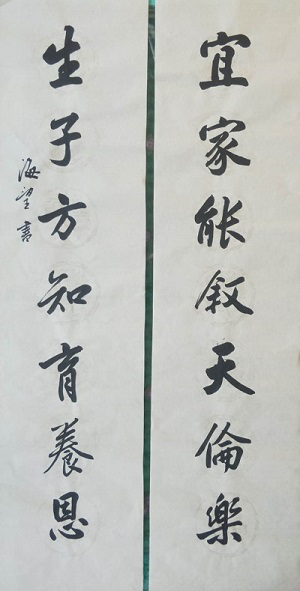 宜家能叙天倫樂
生子方知育養恩
海望書